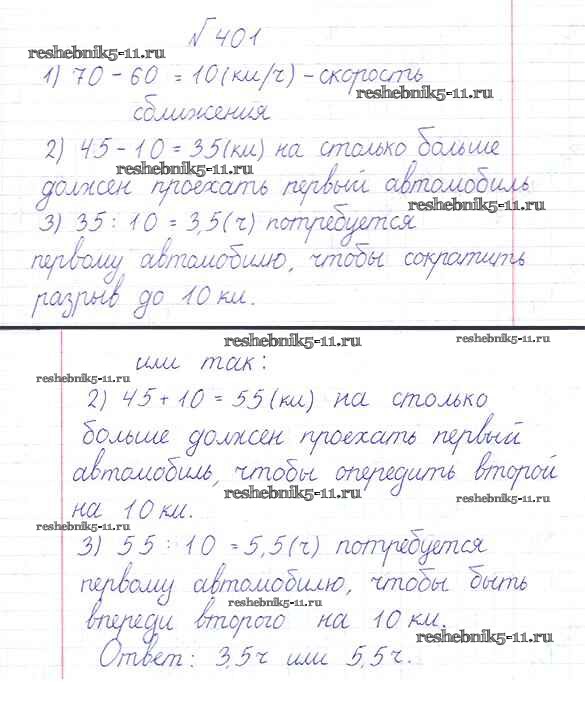 № 401
reshebnik5-11.ru
1) 70 - 60 = 10 (км/ч) - скорость
reshebnik5-11.ru
сближения
2) 45 - 10 = 35 (км) на столько больше
reshebnik5-11.ru
должен проехать первый автомобиль
reshebnik5-11.ru
3) 35 : 10 = 3,5 (ч) потребуется
первому автомобилю, чтобы сократить
разрыв до 10 км.
reshebnik5-11.ru
reshebnik5-11.ru
или так:
reshebnik5-11.ru
2) 45 + 10 = 55 (км) на столько
больше должен проехать первый
автомобиль, чтобы опередить второй
reshebnik5-11.ru
reshebnik5-11.ru
на 10 км.
reshebnik5-11.ru
3) 55 : 10 = 5,5 (ч) потребуется
первому автомобилю, чтобы быть
reshebnik5-11.ru
впереди второго на 10 км.
reshebnik5-11.ru
Ответ: 3,5 ч или 5,5 ч.